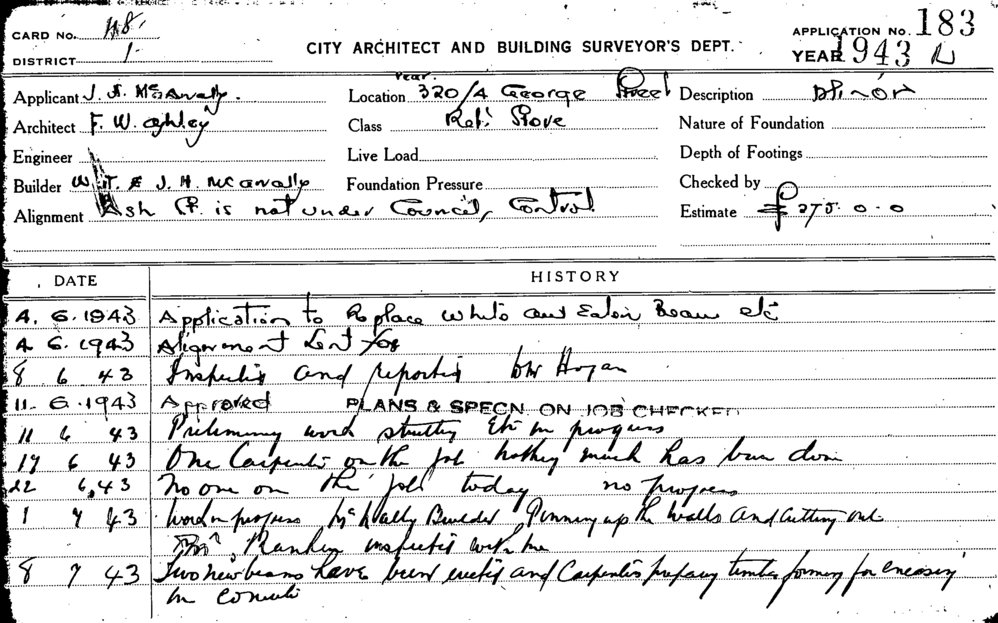 CARD No. 48.
DISTRICT 1
CITY ARCHITECT AND BUILDING SURVEYOR'S DEPT.
APPLICATION No. 183
YEAR 1943
Applicant J. A. McAnally.
Location 320/4 George Street
Description Minor
Architect F. W.
Class Ref: Store
Nature of Foundation
Engineer
Live Load
Depth of Footings
Builder W. T. & J. H. McAnally
Foundation Pressure
Checked by
Alignment Ash St. is not under Council, Control.
Estimate £275.0.0
DATE HISTORY
4. 6. 1943 Application to Replace White ant Eaten Beam etc
4 6. 1943 Alignment Sent for
8 6 43 Inspected and reported Mr Hogan
11. 6. 1943 Approved PLANS & SPECN. ON JOB CHECKED
11 6 43 Preliminary work strutting Etc in progress
17 6 43 One Carpenter on the job nothing much has been done
22 6.43 No one on the job today no progress
1 7 43 Work in progress McAnally Builder Pinning up the walls and cutting out
Mr Rankin inspected with me
8 7 43 Two new beams have been erected and Carpenters preparing timber forming for encasing
in concrete